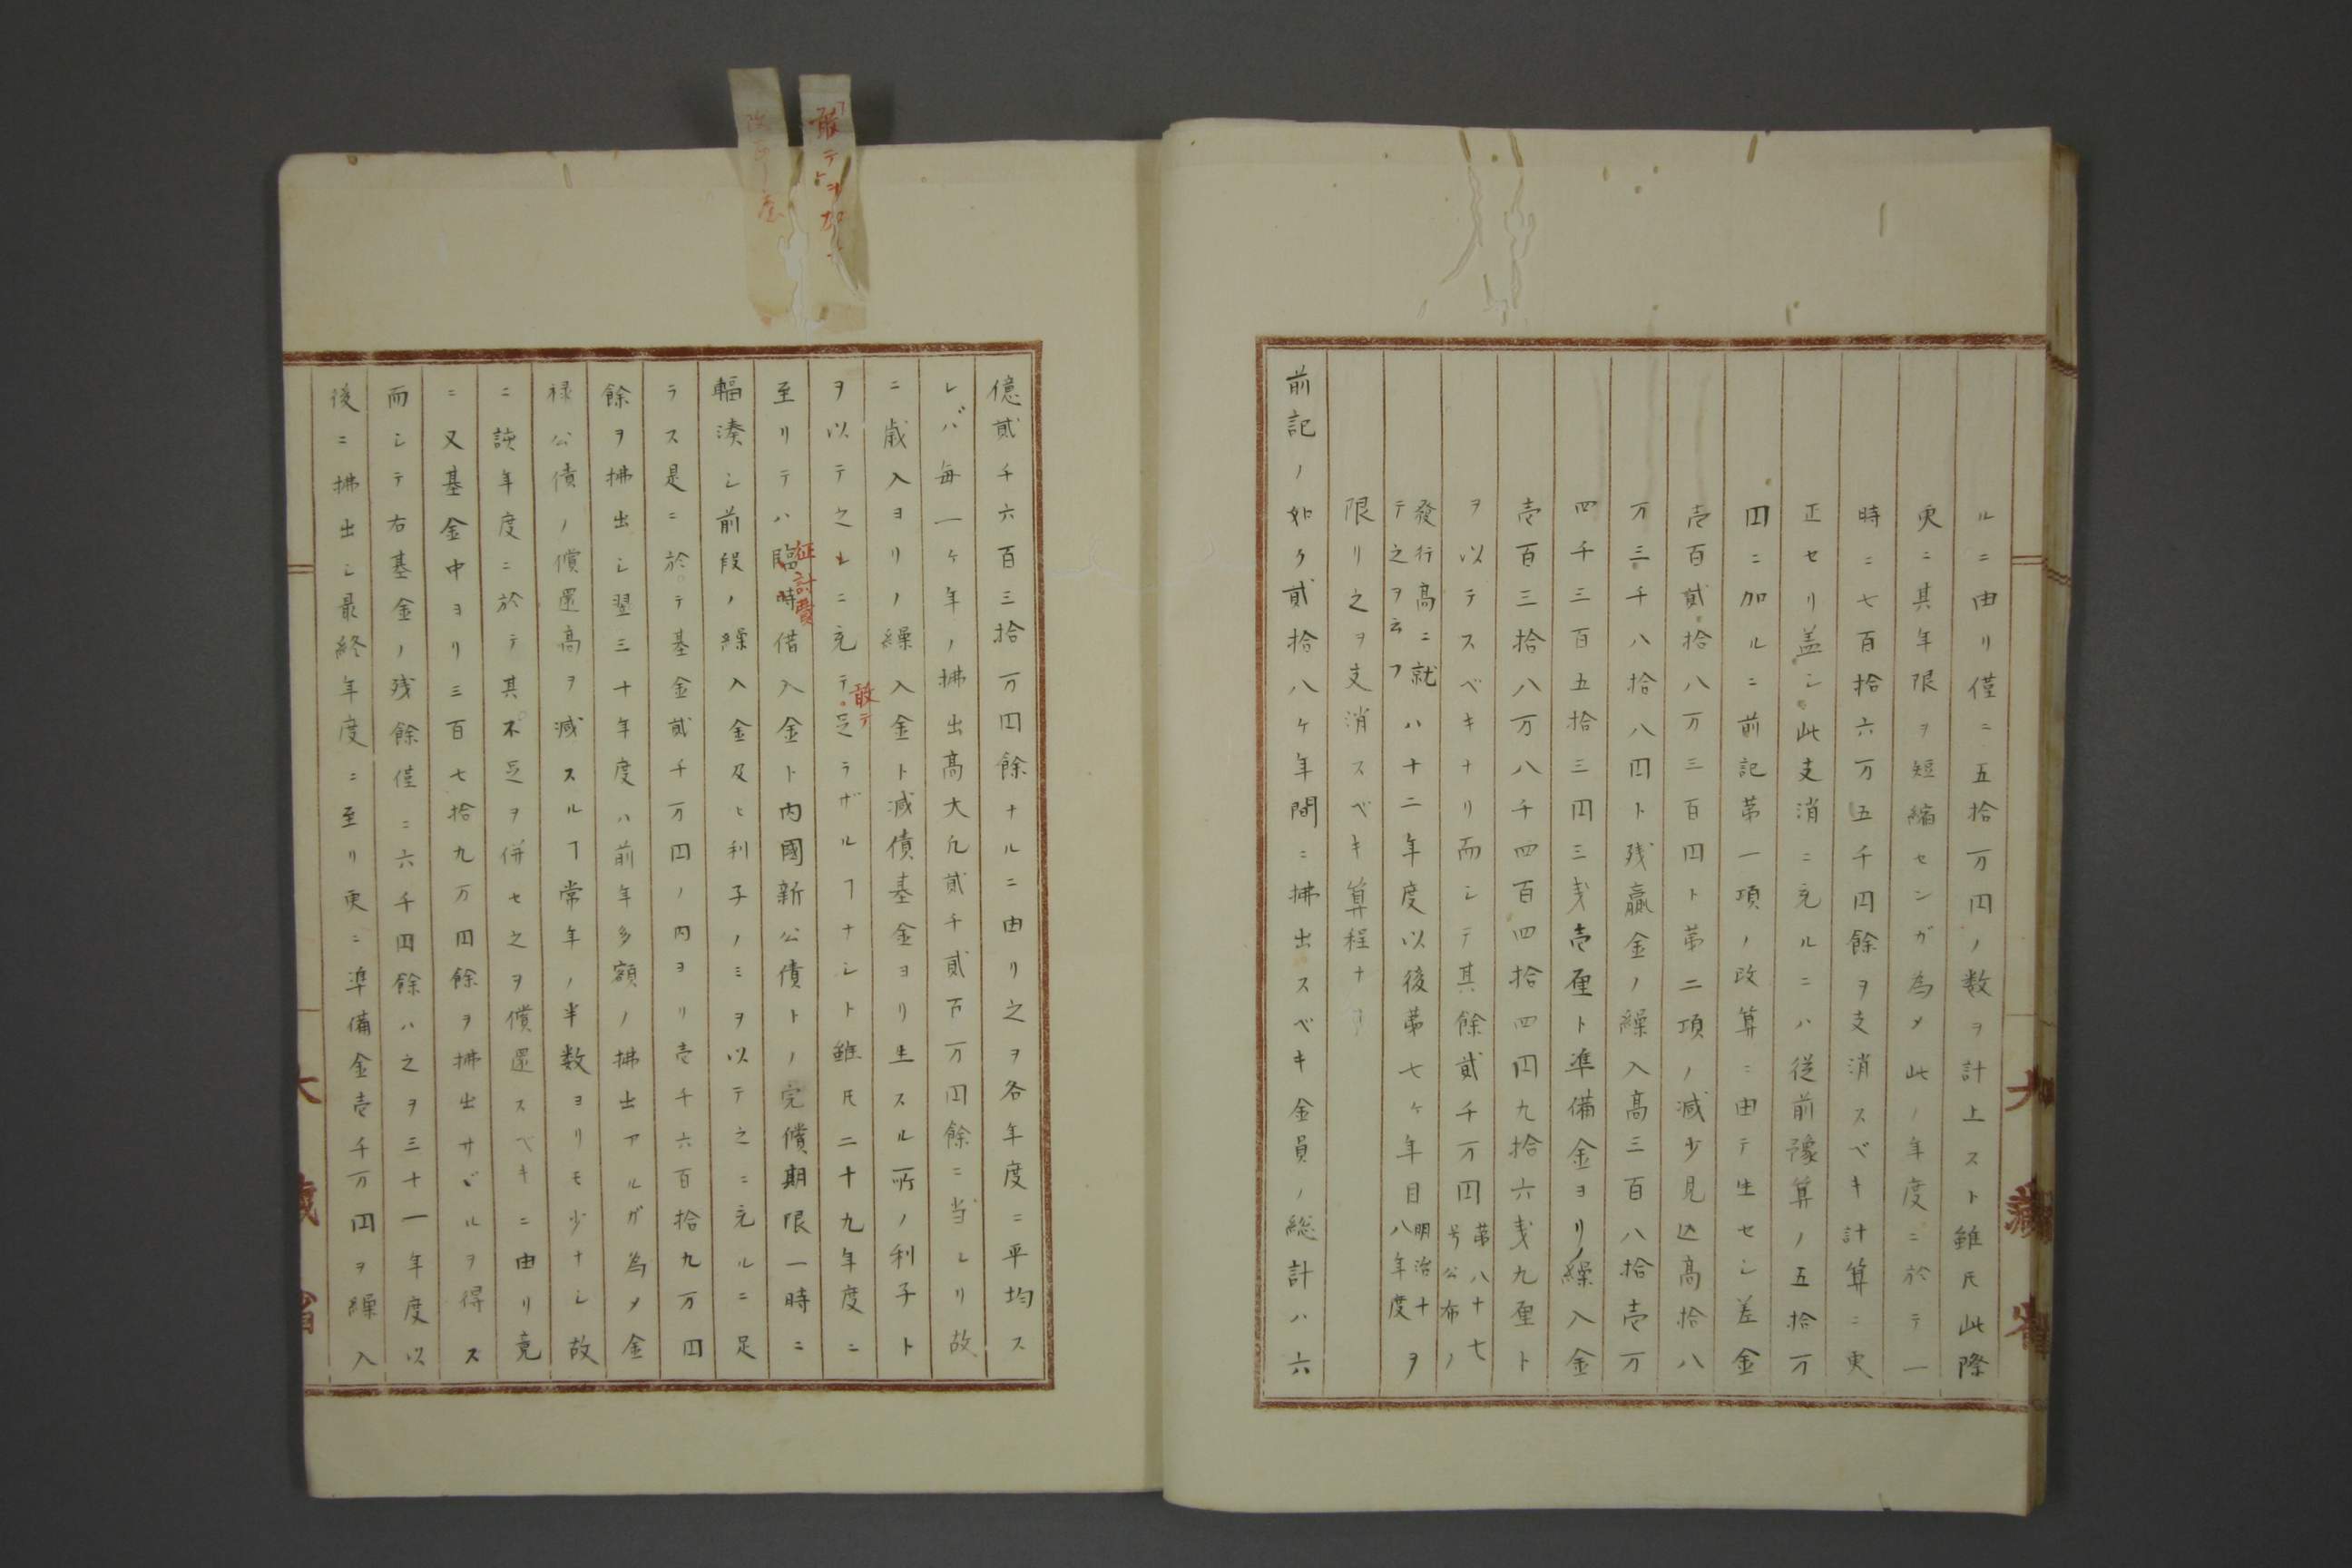 ルニ由リ僅ニ五拾万円ノ数ヲ計上スト雖𪜈此際
更ニ其年限ヲ短縮センガ為メ此ノ年度ニ於テ一
時ニ七百拾六万五千円餘ヲ支消スベキ計算ニ更
正セリ盖シ此支消ニ充ルニハ従前豫算ノ五拾万
円ニ加ルニ前記第一項ノ改算ニ由テ生セシ差金
壱百貳拾八万三百円ト第二項ノ減少見込高拾八
万三千八拾八円ト残贏金ノ繰入高三百八拾壱万
四千三百五拾三円三戔壱厘ト準備金ヨリノ繰入金
壱百三拾八万八千四百四拾四円九拾六戔九厘ト
ヲ以テスベキナリ而シテ其餘貳千万円第八十七号公布ノ
發行高ニ就テ之ヲ云フハ十二年度以後第七ヶ年目明治十八年度ヲ
限リ之ヲ支消スベキ算程ナリ
前記ノ如ク貳拾八ヶ年間ニ拂出スベキ金員ノ総計ハ六
大藏省
億貳千六百三拾万円餘ナルニ由リ之ヲ各年度ニ平均ス
レバ毎一ヶ年ノ拂出高大凢貳千貳百万円餘ニ当レリ故
ニ歳入ヨリノ繰入金ト減債基金ヨリ生スル所ノ利子ト
ヲ以テ之レニ充テ敢テ乏ラザルヿナシト雖𪜈二十九年度ニ
至リテハ臨時征討費借入金ト内國新公債トノ完償期限一時ニ
輻湊シ前段ノ繰入金及ヒ利子ノミヲ以テ之ニ充ルニ足
ラス是ニ於テ基金貳千万円ノ内ヨリ壱千六百拾九万円
餘ヲ拂出シ翌三十年度ハ前年多額ノ拂出アルガ為メ金
禄公債ノ償還高ヲ減スルヿ常年ノ半数ヨリモ少ナシ故
ニ該年度ニ於テ其不乏ヲ併セ之ヲ償還スベキニ由リ竟
ニ又基金中ヨリ三百七拾九万円餘ヲ拂出サヾルヲ得ス
而シテ右基金ノ残餘僅ニ六千円餘ハ之ヲ三十一年度以
後ニ拂出シ最終年度ニ至リ更ニ準備金壱千万円ヲ繰入
大藏省